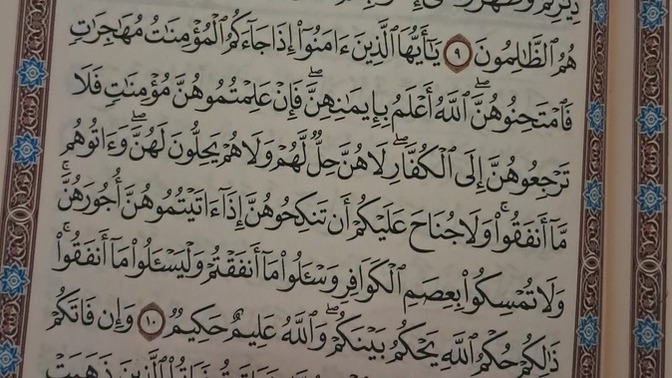 دِيَٰرِكُمْ وَظَٰهَرُوا۟
هُمُ ٱلظَّٰلِمُونَ ٩ يَٰٓأَيُّهَا ٱلَّذِينَ ءَامَنُوٓا۟ إِذَا جَآءَكُمُ ٱلْمُؤْمِنَٰتُ مُهَٰجِرَٰتٍ
فَٱمْتَحِنُوهُنَّ ۖ ٱللَّهُ أَعْلَمُ بِإِيمَٰنِهِنَّ ۖ فَإِنْ عَلِمْتُمُوهُنَّ مُؤْمِنَٰتٍ فَلَا
تَرْجِعُوهُنَّ إِلَى ٱلْكُفَّارِ ۖ لَا هُنَّ حِلٌّ لَّهُمْ وَلَا هُمْ يَحِلُّونَ لَهُنَّ ۖ وَءَاتُوهُم
مَّآ أَنفَقُوا۟ ۚ وَلَا جُنَاحَ عَلَيْكُمْ أَن تَنكِحُوهُنَّ إِذَآ ءَاتَيْتُمُوهُنَّ أُجُورَهُنَّ ۚ
وَلَا تُمْسِكُوا۟ بِعِصَمِ ٱلْكَوَافِرِ وَسْـَٔلُوا۟ مَآ أَنفَقْتُمْ وَلْيَسْـَٔلُوا۟ مَآ أَنفَقُوا۟ ۚ
ذَٰلِكُمْ حُكْمُ ٱللَّهِ يَحْكُمُ بَيْنَكُمْ ۖ وَٱللَّهُ عَلِيمٌ حَكِيمٌ ١٠ وَإِن فَاتَكُمْ
ٱلَّذِينَ ذَهَبَتْ